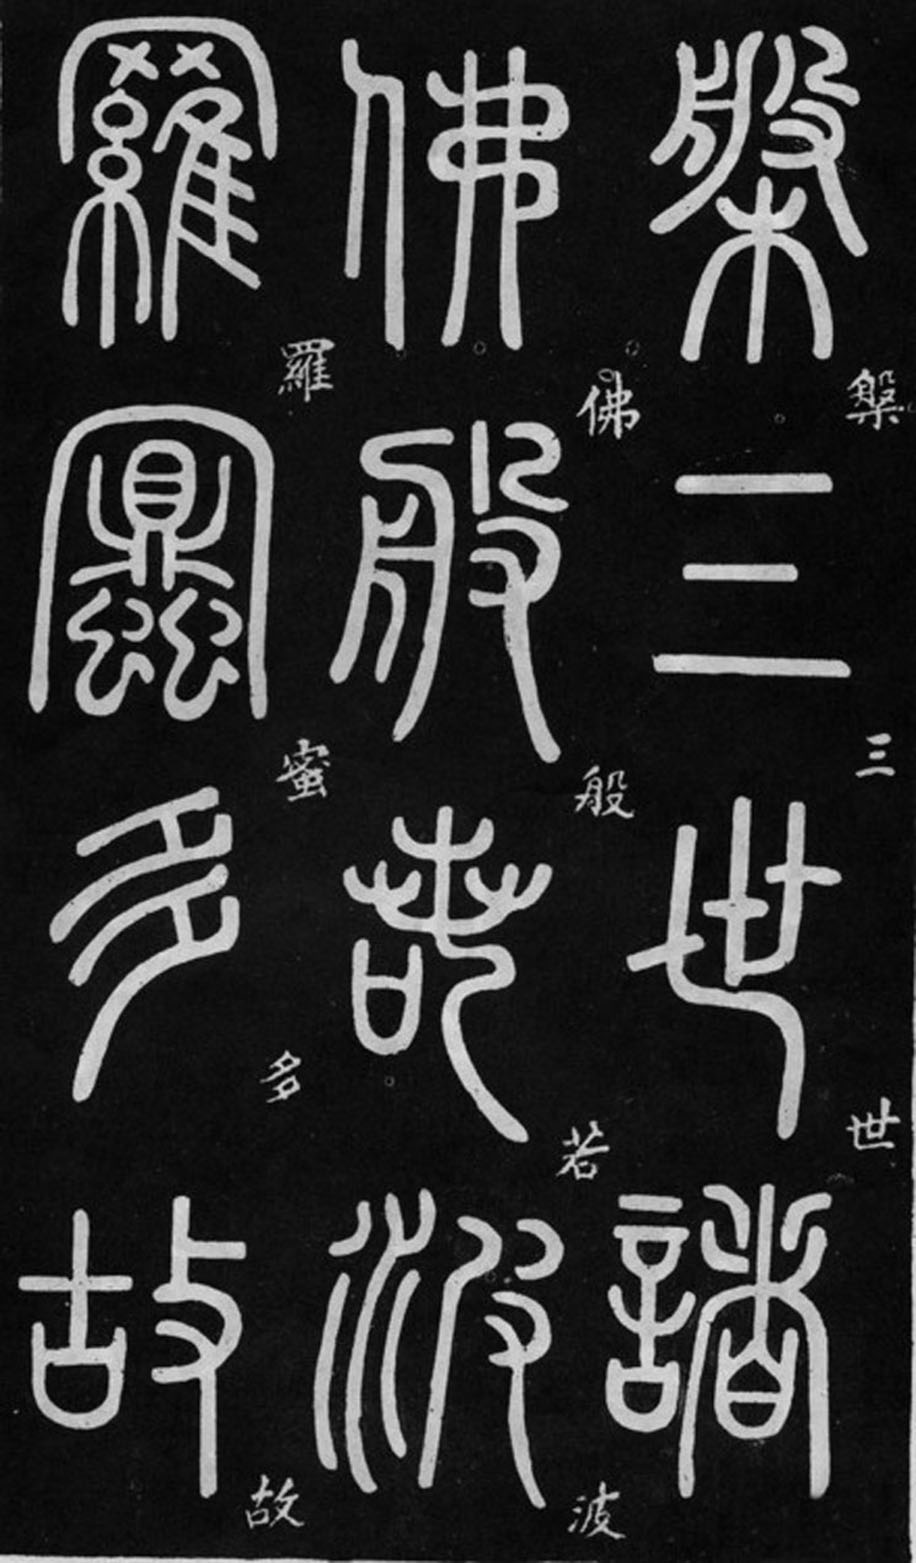 槃三世諸
槃三世
佛般若波
佛般若波
羅蜜多故
羅蜜多故